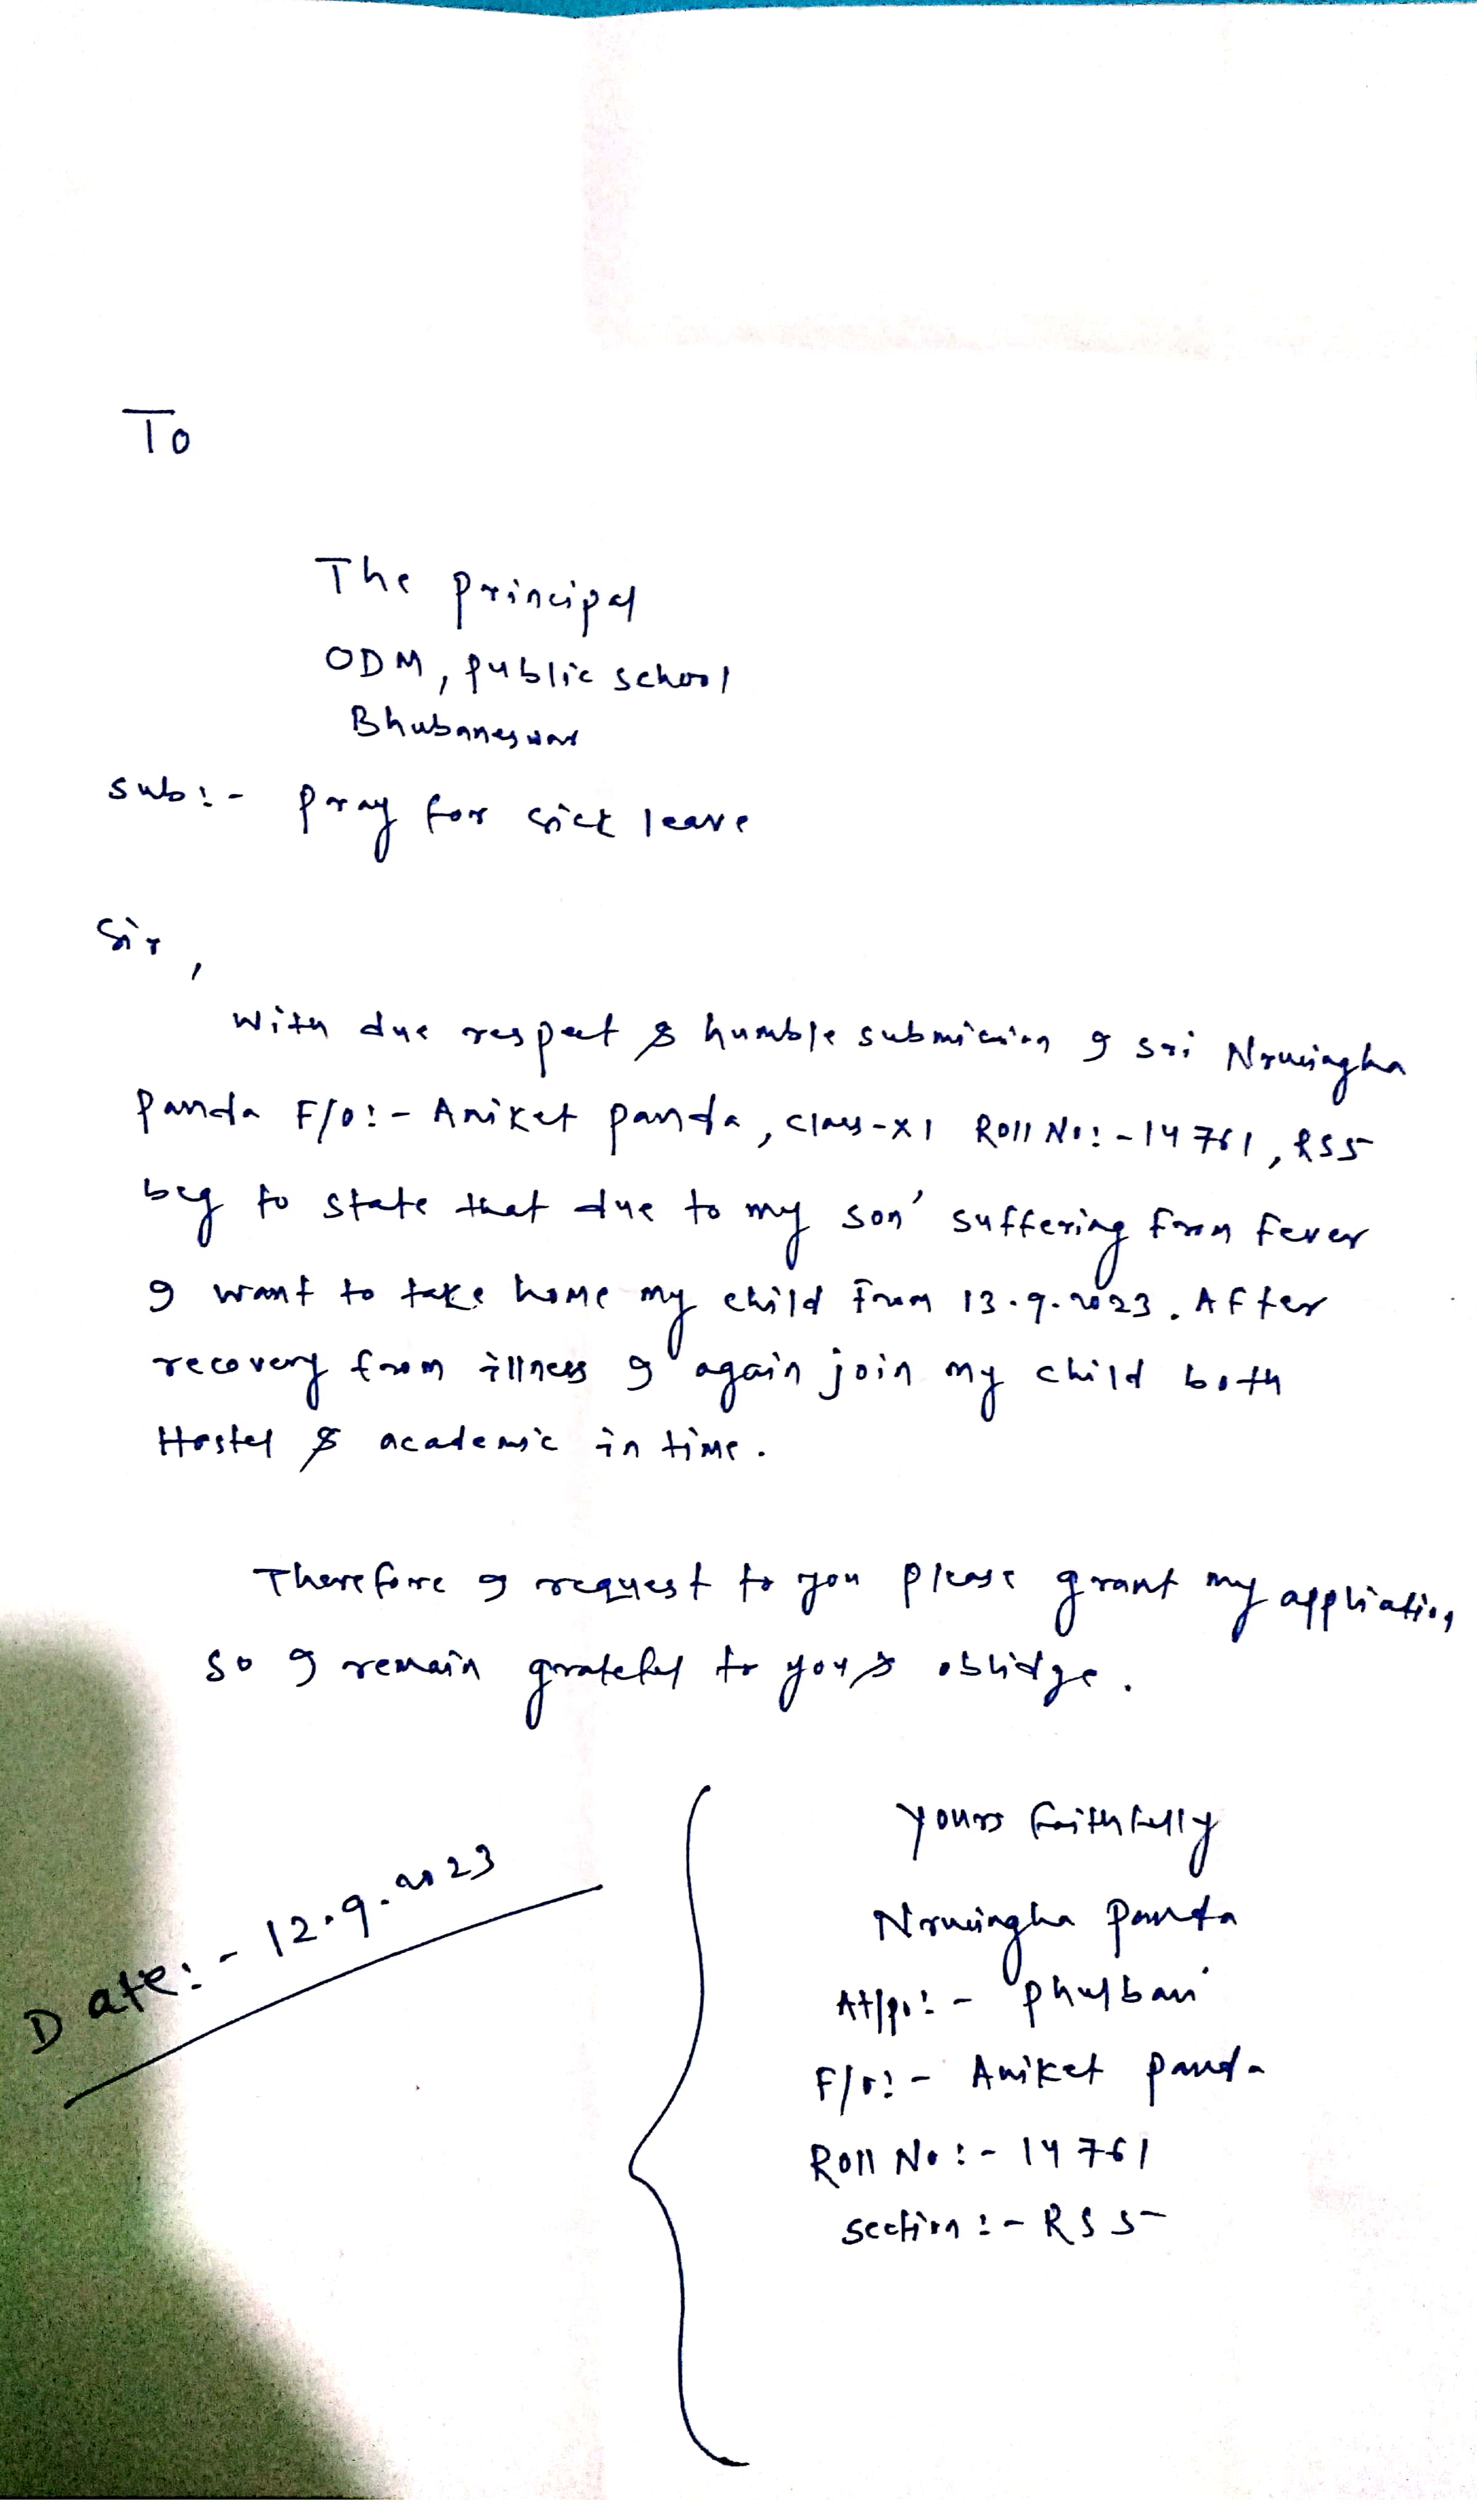 To
The principal
ODM, public school
Bhubaneswar
Sub:- pray for sick leave
Sir,
With due respect & humble submission I Sri Nrusingha
Panda F/O:- Aniket panda, class-XI Roll No:- 14761, RS5
beg to state that due to my son' suffering from fever
I want to take home my child from 13.9.2023. After
recovery from illness I again join my child both
Hostel & academic in time.
Therefore I request to you please grant my application
so I remain grateful to you & oblidge.
Yours faithfully
Nrusingha panda
At/po:- phulbani
F/O:- Aniket panda
Roll No:- 14761
Section:- RS5
Date:- 12.9.2023